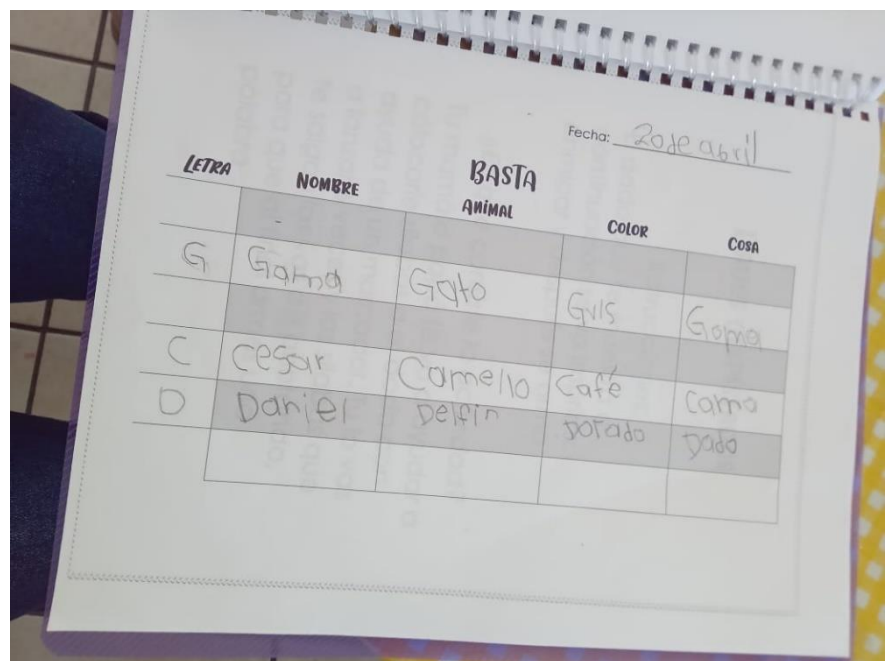 Fecha: 20 de abril
BASTA
LETRA NOMBRE ANIMAL COLOR COSA
G Gama Gato Gris Goma
C Cesar Camello Café cama
D Daniel Delfin Dorado Dado